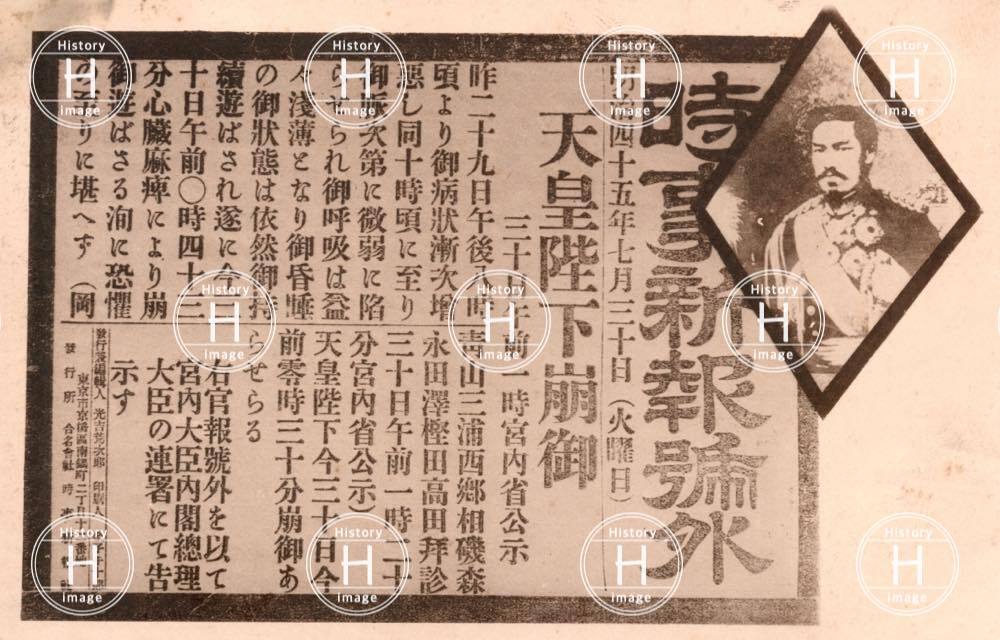 時事新報號外
明治四十五年七月三十日(火曜日)
天皇陛下崩御
三十日午前一時宮内省公示
昨二十九日午後八時
頃より御病狀漸次增
惡し同十時頃に至り
御脈次第に微弱に陷
らせられ御呼吸は益
々淺薄となり御昏睡
の御狀態は依然御持
續遊ばされ遂に今三
十日午前〇時四十三
分心臟麻痺により崩
御遊ばさる洵に恐懼
の至りに堪へず(岡
靑山三浦西鄕相磯森
永田澤樫田高田拜診
三十日午前一時二十
分宮内省公示)
天皇陛下今三十日今
前零時三十分崩御あ
らせらる
右官報號外を以て
宮内大臣内閣總理
大臣の連署にて告
示す
發行兼編輯人 光吉 次郎 印刷人
東京市京橋區南鍋町二丁目十 番地
發行所 合名會社 時事
History
H
image
History
H
image
History
H
image
History
H
image
History
H
image
History
H
image
History
H
image
History
H
image
History
H
image
History
H
image
History
H
image